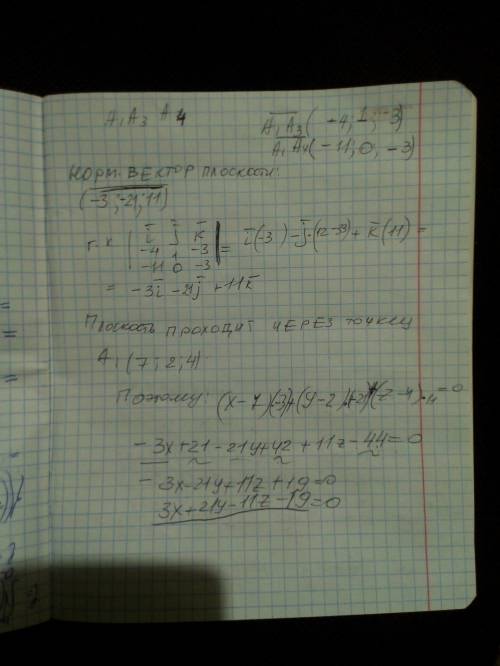 A₁A₃ A4
A₁A₃(-4; 1; -3)
A₁A₄(-11; 0; -3)
НОРМ. ВЕКТОР ПЛОСКОСТИ:
(-3; -21; 11)
т.к | i j k
-4 1 -3
-11 0 -3 | = i(-3)-j·(12-33)+k(11) =
= -3i -21j +11k
Плоскость проходит через точку
A₁(7; 2; 4)
Поэтому: (x-7)(-3)+(y-2)·(-21)+(z-4)·11=0
-3x+21-21y+42+11z-44=0
-3x-21y+11z+19=0
3x+21y-11z-19=0